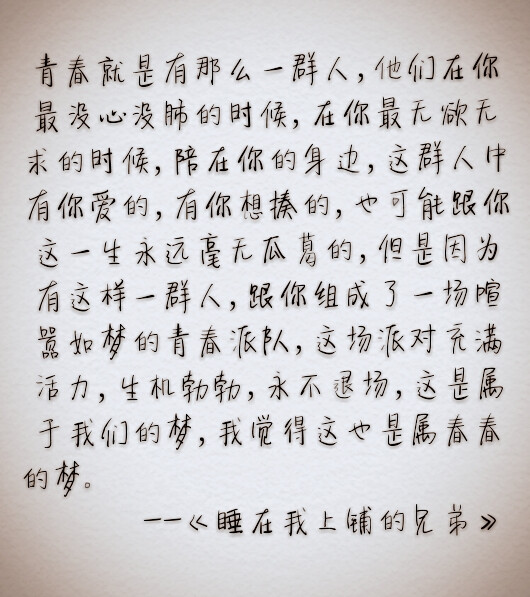 青春就是有那么一群人,他们在你
最没心没肺的时候,在你最无欲无
求的时候,陪在你的身边,这群人中
有你爱的,有你想揍的,也可能跟你
这一生永远毫无瓜葛的,但是因为
有这样一群人,跟你组成了一场喧
嚣如梦的青春派队,这场派对充满
活力,生机勃勃,永不退场,这是属
于我们的梦,我觉得这也是属春春
的梦。
——《睡在我上铺的兄弟》